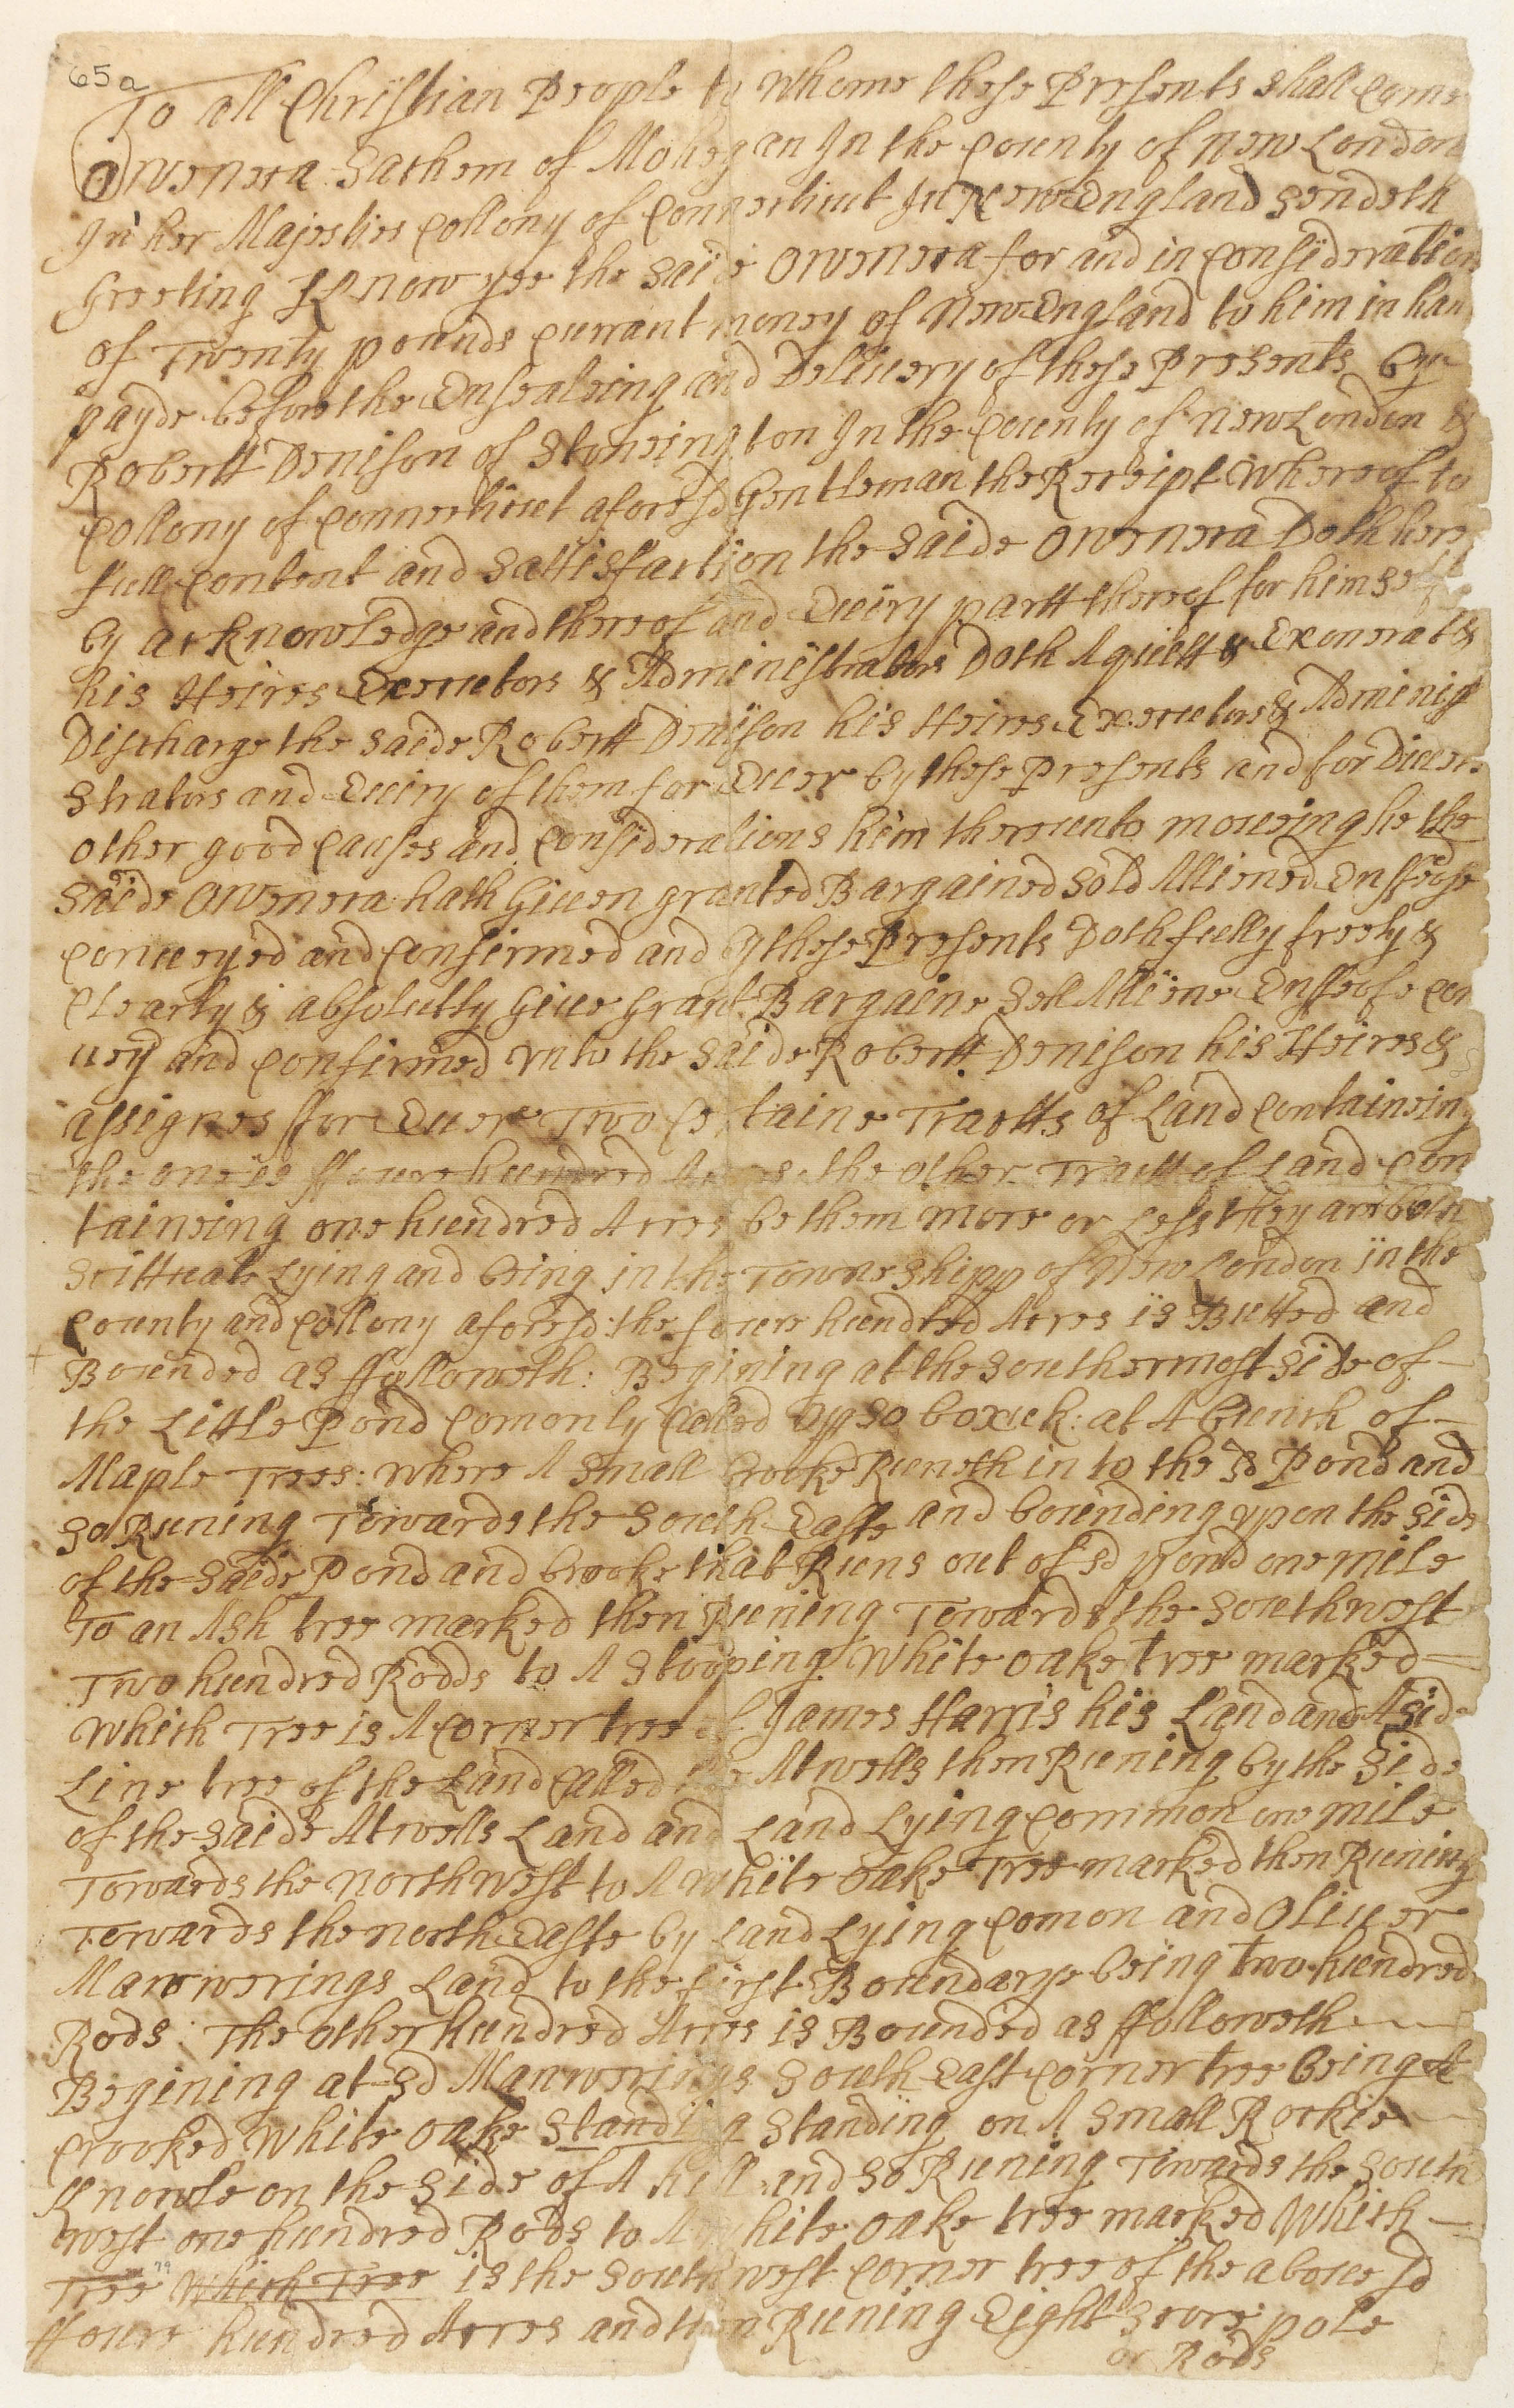 65a
To all Christian People to Whome these Presents shall Come
Oweneca Sachem of Moheg an In the County of New London
In her Majesties Collony of Connecticut In New England sendeth
Greeting Know yee the Saide Oweneca for and in Consideration
of Twenty pounds Currant money of New England to him in han
payde before the Ensealeing and Deliuery of these Presents by
Robertt Denison of Stoneing ton In the County of New London &
Collony of Connecticut aforesd Gentleman the Receipt Whereof to
full Content and Sattisfaction the Saide Oweneca Doth here
by acknowledge and thereof and Eueiry partt thereof for himself
his Heires Executors & Administrators Doth Aquitt & Exonerat &
Discharge the Saide Robertt Denison his Heires Executors & Adminis
strators and Eueiry of them for Euer by these Presents and for Diuers
other good Causes and Considerations him thereunto moueing he the
Saide Oweneca hath Giuen granted Bargained Sold Aliened Enffeofe
Conueyed and Confirmed and by these Presents Doth fully freely &
Clearly & absolutly Giue Grant Bargaine Sell Aliene Enffeofe Con
uey and Confirmed vnto the Saide Robertt Denison his Heires &
assignes ffor Euer Two Certaine Tractts of Land Containeing
the one is ffoure hundred Acres the other Tractt of Land Con
taineing one hundred Acres be them more or Less they are both
Scittuate Lying and being in the Towneshipp of New London in the
County and Collony aforesd: the foure hundred Acres is Butted and
Bounded as ffolloweth: Begining at the Southermost Side of
the Little Pond Comonly Called Opsoboxuck: at A bunch of
Maple Trees: where A Small brooke Runeth in to the sd Pond and
So Runing Towards the South Easte and bounding vpon the Side
of the Saide Pond and brooke that Runs out of sd pond one mile
To an Ash tree marked then Runing Towards the Southwest
Two hundred Rodds to A Stooping White oake tree marked
Which Tree is A Corner tree of James Harris his Land and A Side
Line tree of the Land Called the Atwells then Runing by the Side
of the Saide Atwells Land and Land Lying Common one mile
Towards the northwest to A White oake Tree marked then Runing
Towards the north Easte by Land Lying Comon and Oliuer
Manwerings Land to the first Boundarye being two hundred
Rods: The other hundred Acres is Bounded as ffolloweth
Begining at sd Manwerings South East Corner tree being A
Crooked White oake standing Standing on A Small Rockie
Knowle on the Side of A hill and So Runing Towards the South
west one hundred Rods to A White oake tree marked Which
Tree Which Tree is the South west Corner tree of the aboue sd
ffoure hundred Acres and then Runing Eight Score pole
or Rods